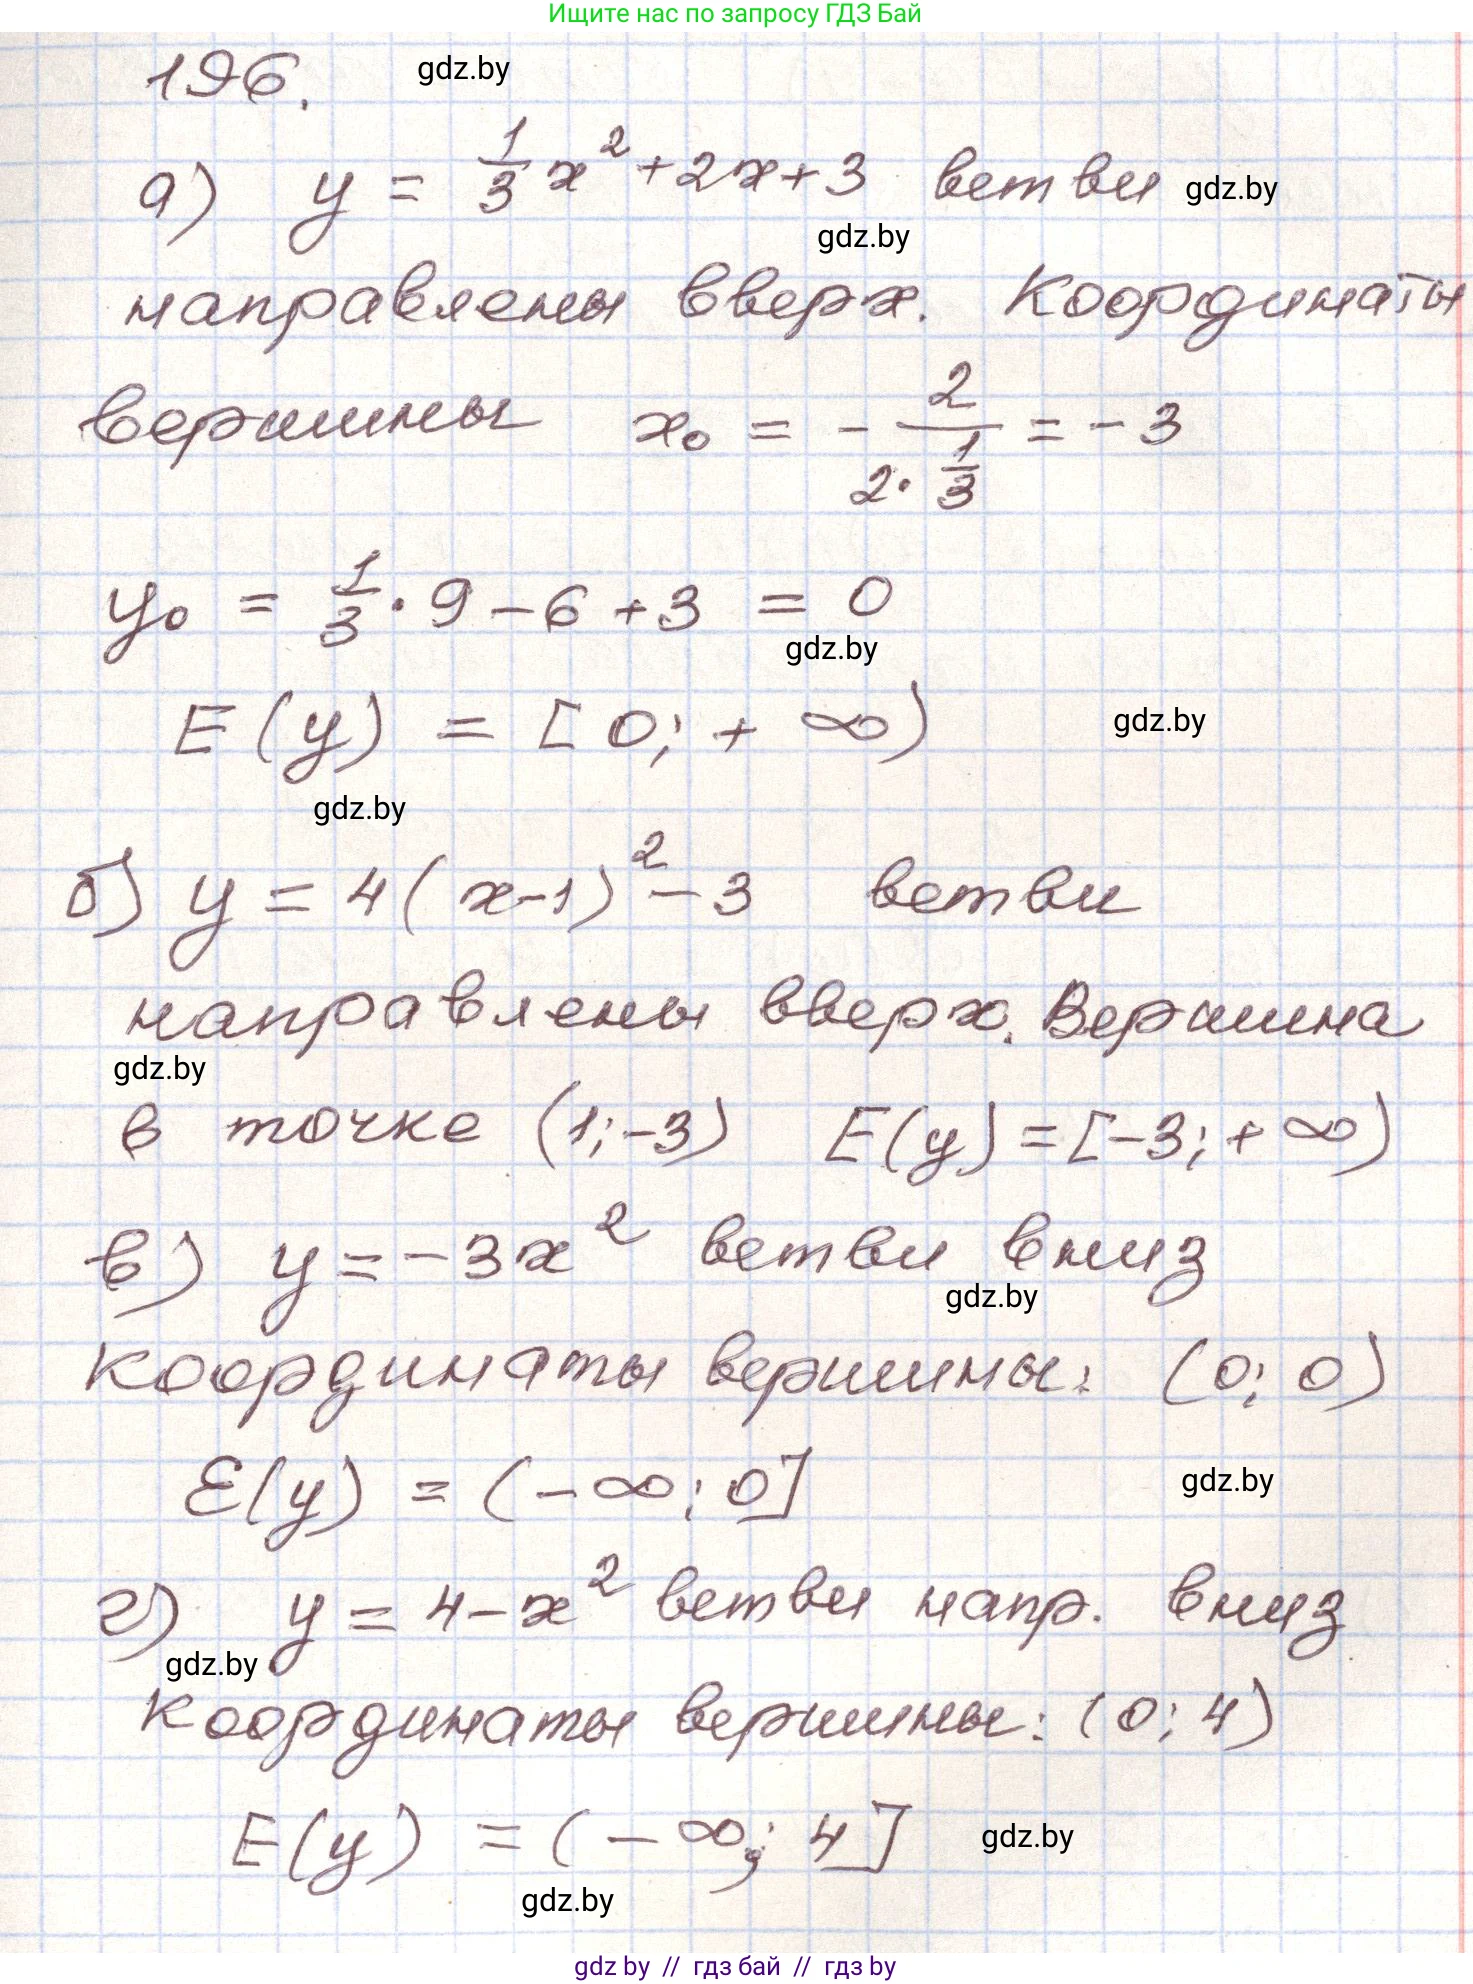 Ищите нас по запросу ГДЗ Бай
196. gdz.by
а) y = 1/3 x² + 2x + 3 ветви gdz.by
gdz.by
направлены вверх. Координаты
вершины x₀ = - 2/(2·1/3) = -3
y₀ = 1/3 · 9 - 6 + 3 = 0
gdz.by
E(y) = [0; +∞) gdz.by
gdz.by
б) y = 4(x-1)² - 3 ветви
направлены вверх. Вершина
gdz.by
в точке (1; -3) E(y) = [-3; +∞)
в) y = -3x² ветви вниз
gdz.by
координаты вершины: (0; 0)
E(y) = (-∞; 0] gdz.by
г) y = 4 - x² ветви напр. вниз
gdz.by
координаты вершины: (0; 4)
E(y) = (-∞; 4] gdz.by
gdz.by
gdz by // гдз бай // гдз by